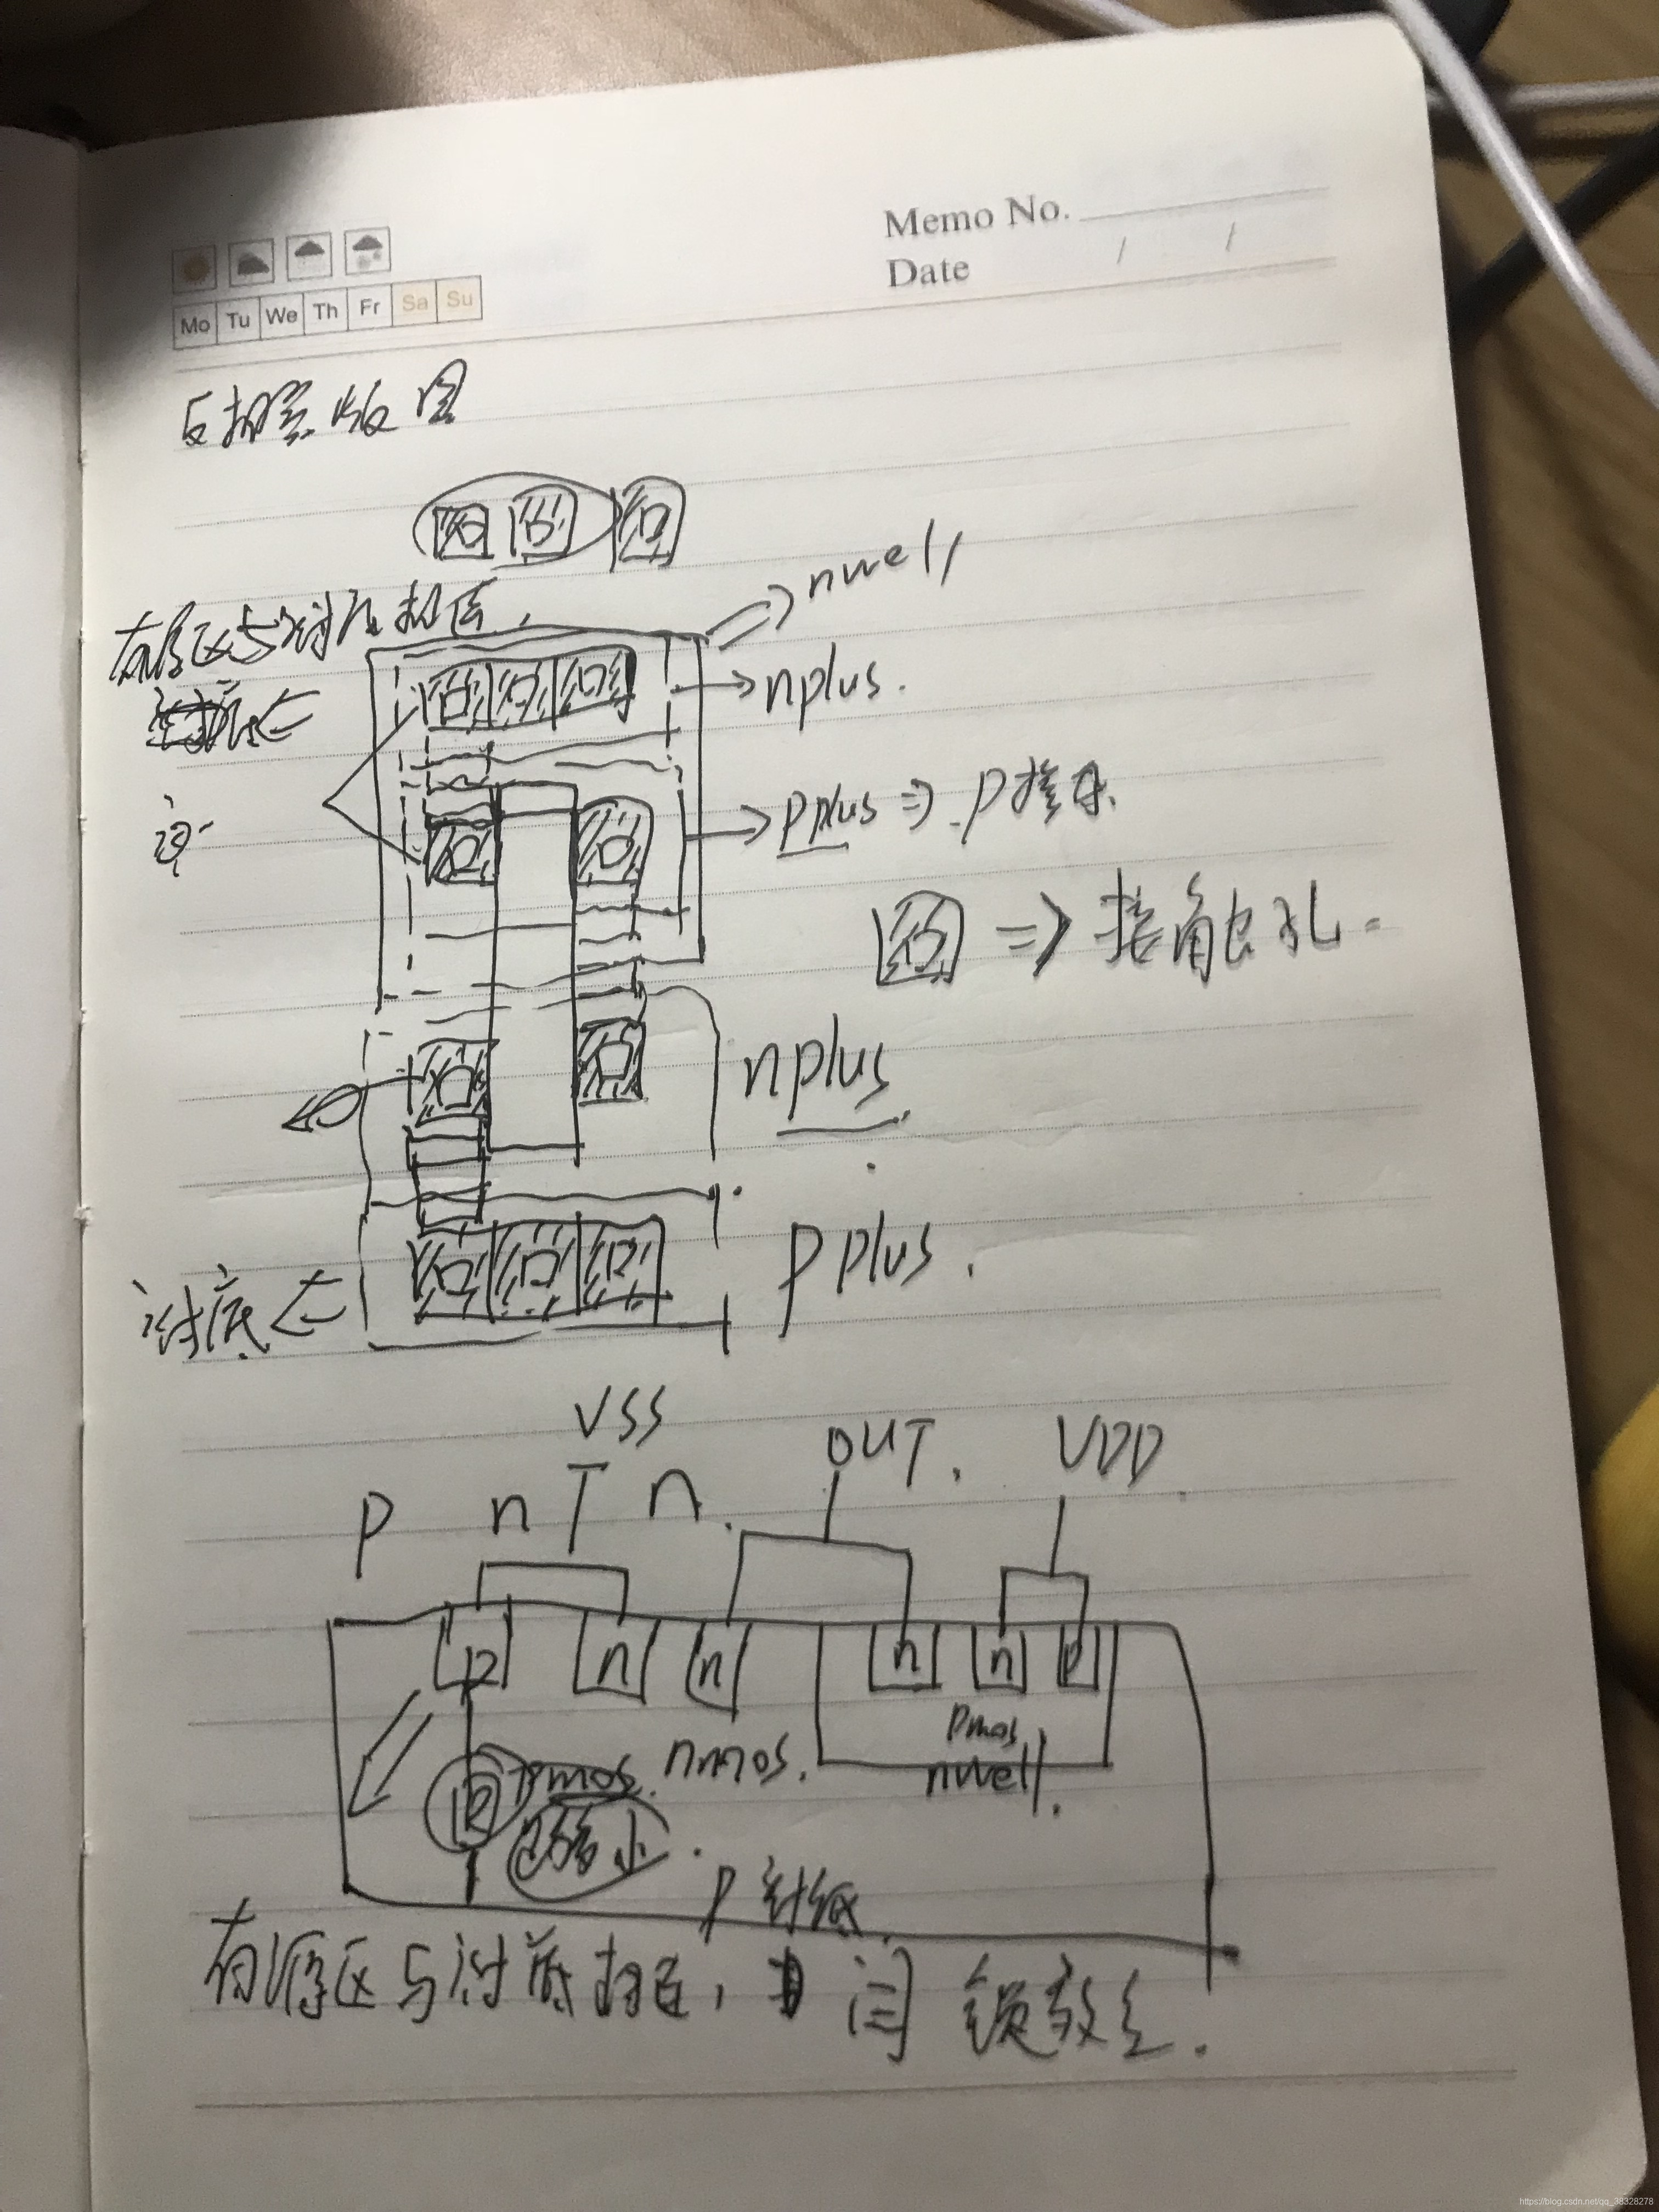 Memo No.
Date / /
Mo Tu We Th Fr Sa Su
反相器版图
nwell
有源区与衬底相连.
nplus.
pplus ⇒ P掺杂.
⇒ 接触孔.
nplus.
衬底 ⇐
pplus.
VSS
OUT. VDD
p n n.
p n n n n p
pmos
pmos. nmos. nwell.
p 衬底
有源区与衬底相连, 闩锁效应.
https://blog.csdn.net/qq_38328278